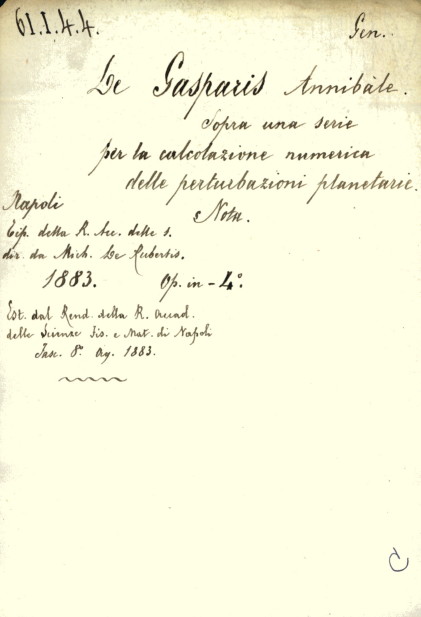 61.I.4.4.
Gen.
De Gasparis Annibale.
Sopra una serie
per la calcolazione numerica
delle perturbazioni planetarie.
Nota.
Napoli
Tip. della R. Acc. delle s.
dir. da Mich. De Rubertis.
1883. Op. in-4°.
Est. dal Rend. della R. Accad.
delle Scienze Fis. e Mat. di Napoli
Fasc. 8° Ag. 1883.